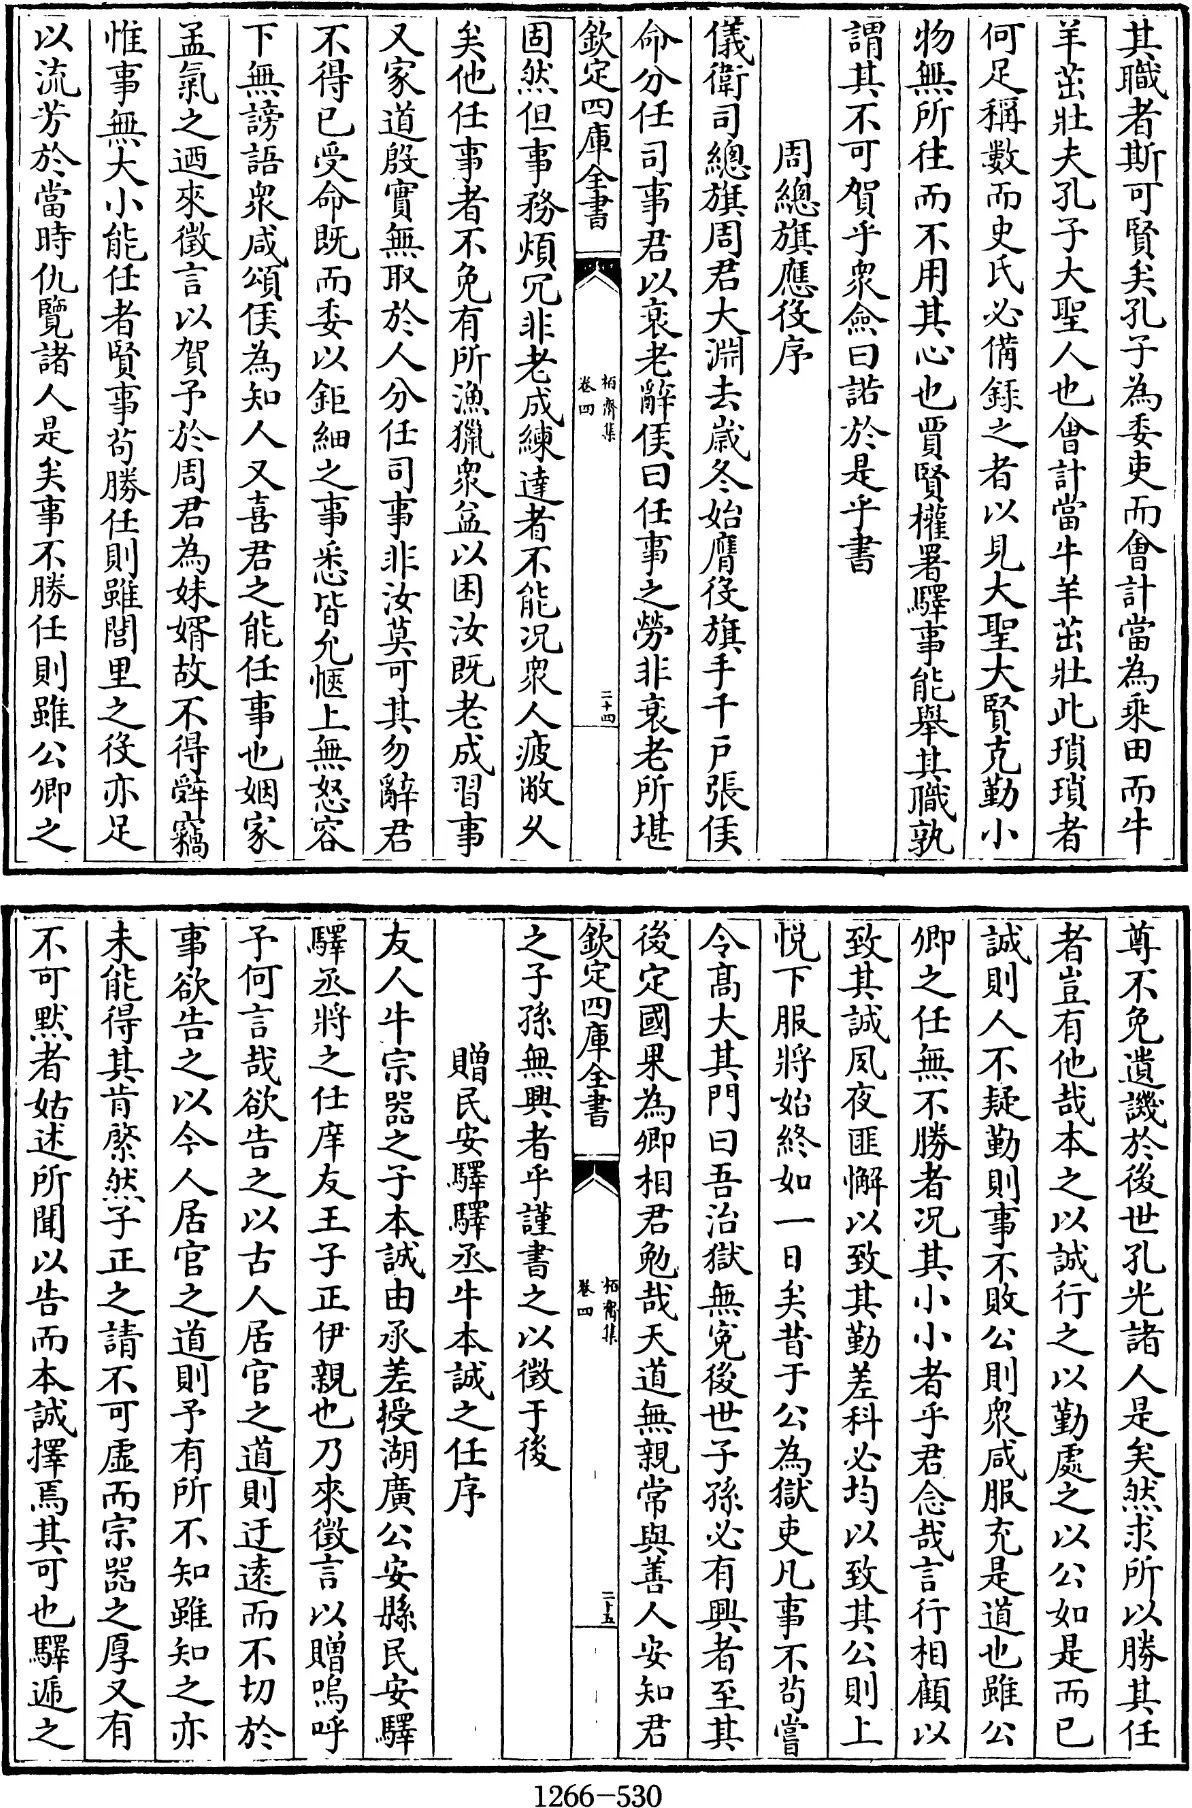 其職者斯可賢矣孔子為委吏而會計當為乘田而牛
羊茁壯夫孔子大聖人也會計當牛羊茁壯此瑣瑣者
何足稱數而史氏必備錄之者以見大聖大賢克勤小
物無所往而不用其心也賈賢權署驛事能舉其職孰
謂其不可賀乎衆僉曰諾於是乎書
周總旗應役序
儀衛司總旗周君大淵去歲冬始膺役旗手千戶張侯
命分任司事君以衰老辭侯曰任事之勞非衰老所堪
欽定四庫全書
栢齋集
卷四
三十四
固然但事務煩冗非老成練達者不能况衆人疲敝乆
矣他任事者不免有所漁獵衆益以困汝既老成習事
又家道殷實無取於人分任司事非汝莫可其勿辭君
不得已受命既而委以鉅細之事悉皆允愜上無怒容
下無謗語衆咸頌侯為知人又喜君之能任事也姻家
孟氣之迺來徵言以賀予於周君為妹婿故不得辭竊
惟事無大小能任者賢事茍勝任則雖閭里之役亦足
以流芳於當時仇覽諸人是矣事不勝任則雖公卿之
尊不免遺譏於後世孔光諸人是矣然求所以勝其任
者豈有他哉本之以誠行之以勤處之以公如是而已
誠則人不疑勤則事不敗公則衆咸服充是道也雖公
卿之任無不勝者况其小小者乎君念哉言行相顧以
致其誠夙夜匪懈以致其勤差科必均以致其公則上
悦下服將始終如一日矣昔于公為獄吏凡事不茍嘗
令髙大其門曰吾治獄無寃後世子孫必有興者至其
後定國果為卿相君勉哉天道無親常與善人安知君
欽定四庫全書
栢齋集
卷四
三十五
之子孫無興者乎謹書之以徵于後
贈民安驛驛丞牛本誠之任序
友人牛宗器之子本誠由承差授湖廣公安縣民安驛
驛丞將之任庠友王子正伊親也乃來徵言以贈嗚呼
予何言哉欲告之以古人居官之道則迂遠而不切於
事欲告之以今人居官之道則予有所不知雖知之亦
未能得其肯綮然子正之請不可虛而宗器之厚又有
不可黙者姑述所聞以告而本誠擇焉其可也驛遞之
1266-530